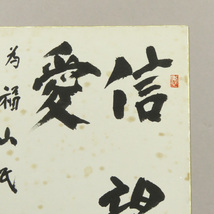 信望
愛
为福山氏